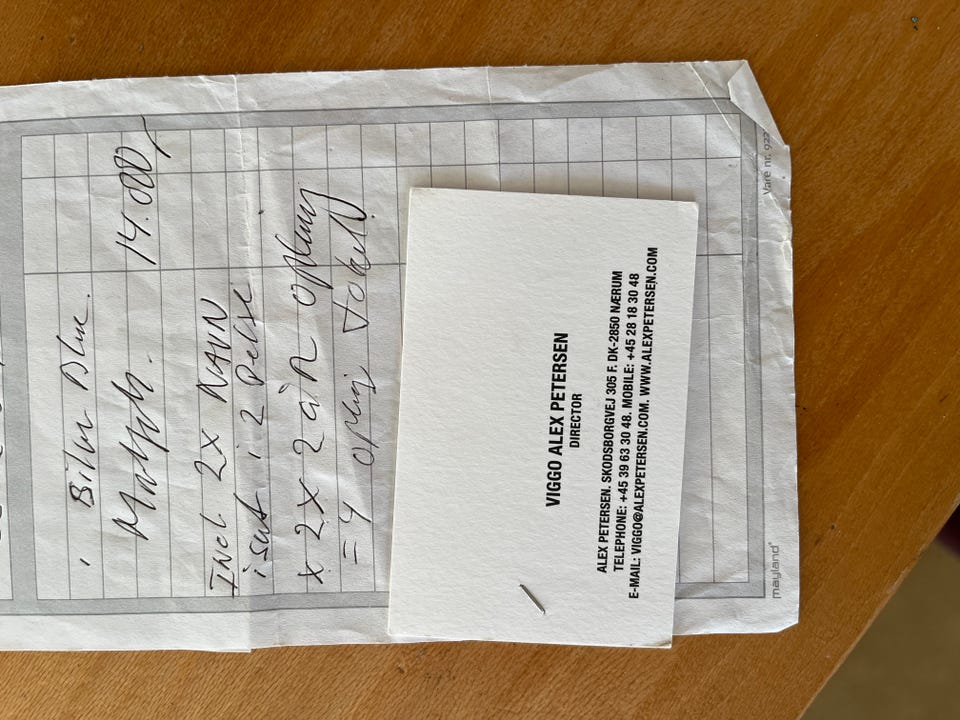 14.000,-
Incl. 2x NAVN
isat i 2 Pelse
x 2x 2 år
= 4
VIGGO ALEX PETERSEN
DIRECTOR
ALEX PETERSEN. SKODSBORGVEJ 305 F. DK-2850 NÆRUM
TELEPHONE: +45 39 63 30 48. MOBILE: +45 28 18 30 48
E-MAIL: VIGGO@ALEXPETERSEN.COM. WWW.ALEXPETERSEN.COM
mayland®
Vare nr. 922